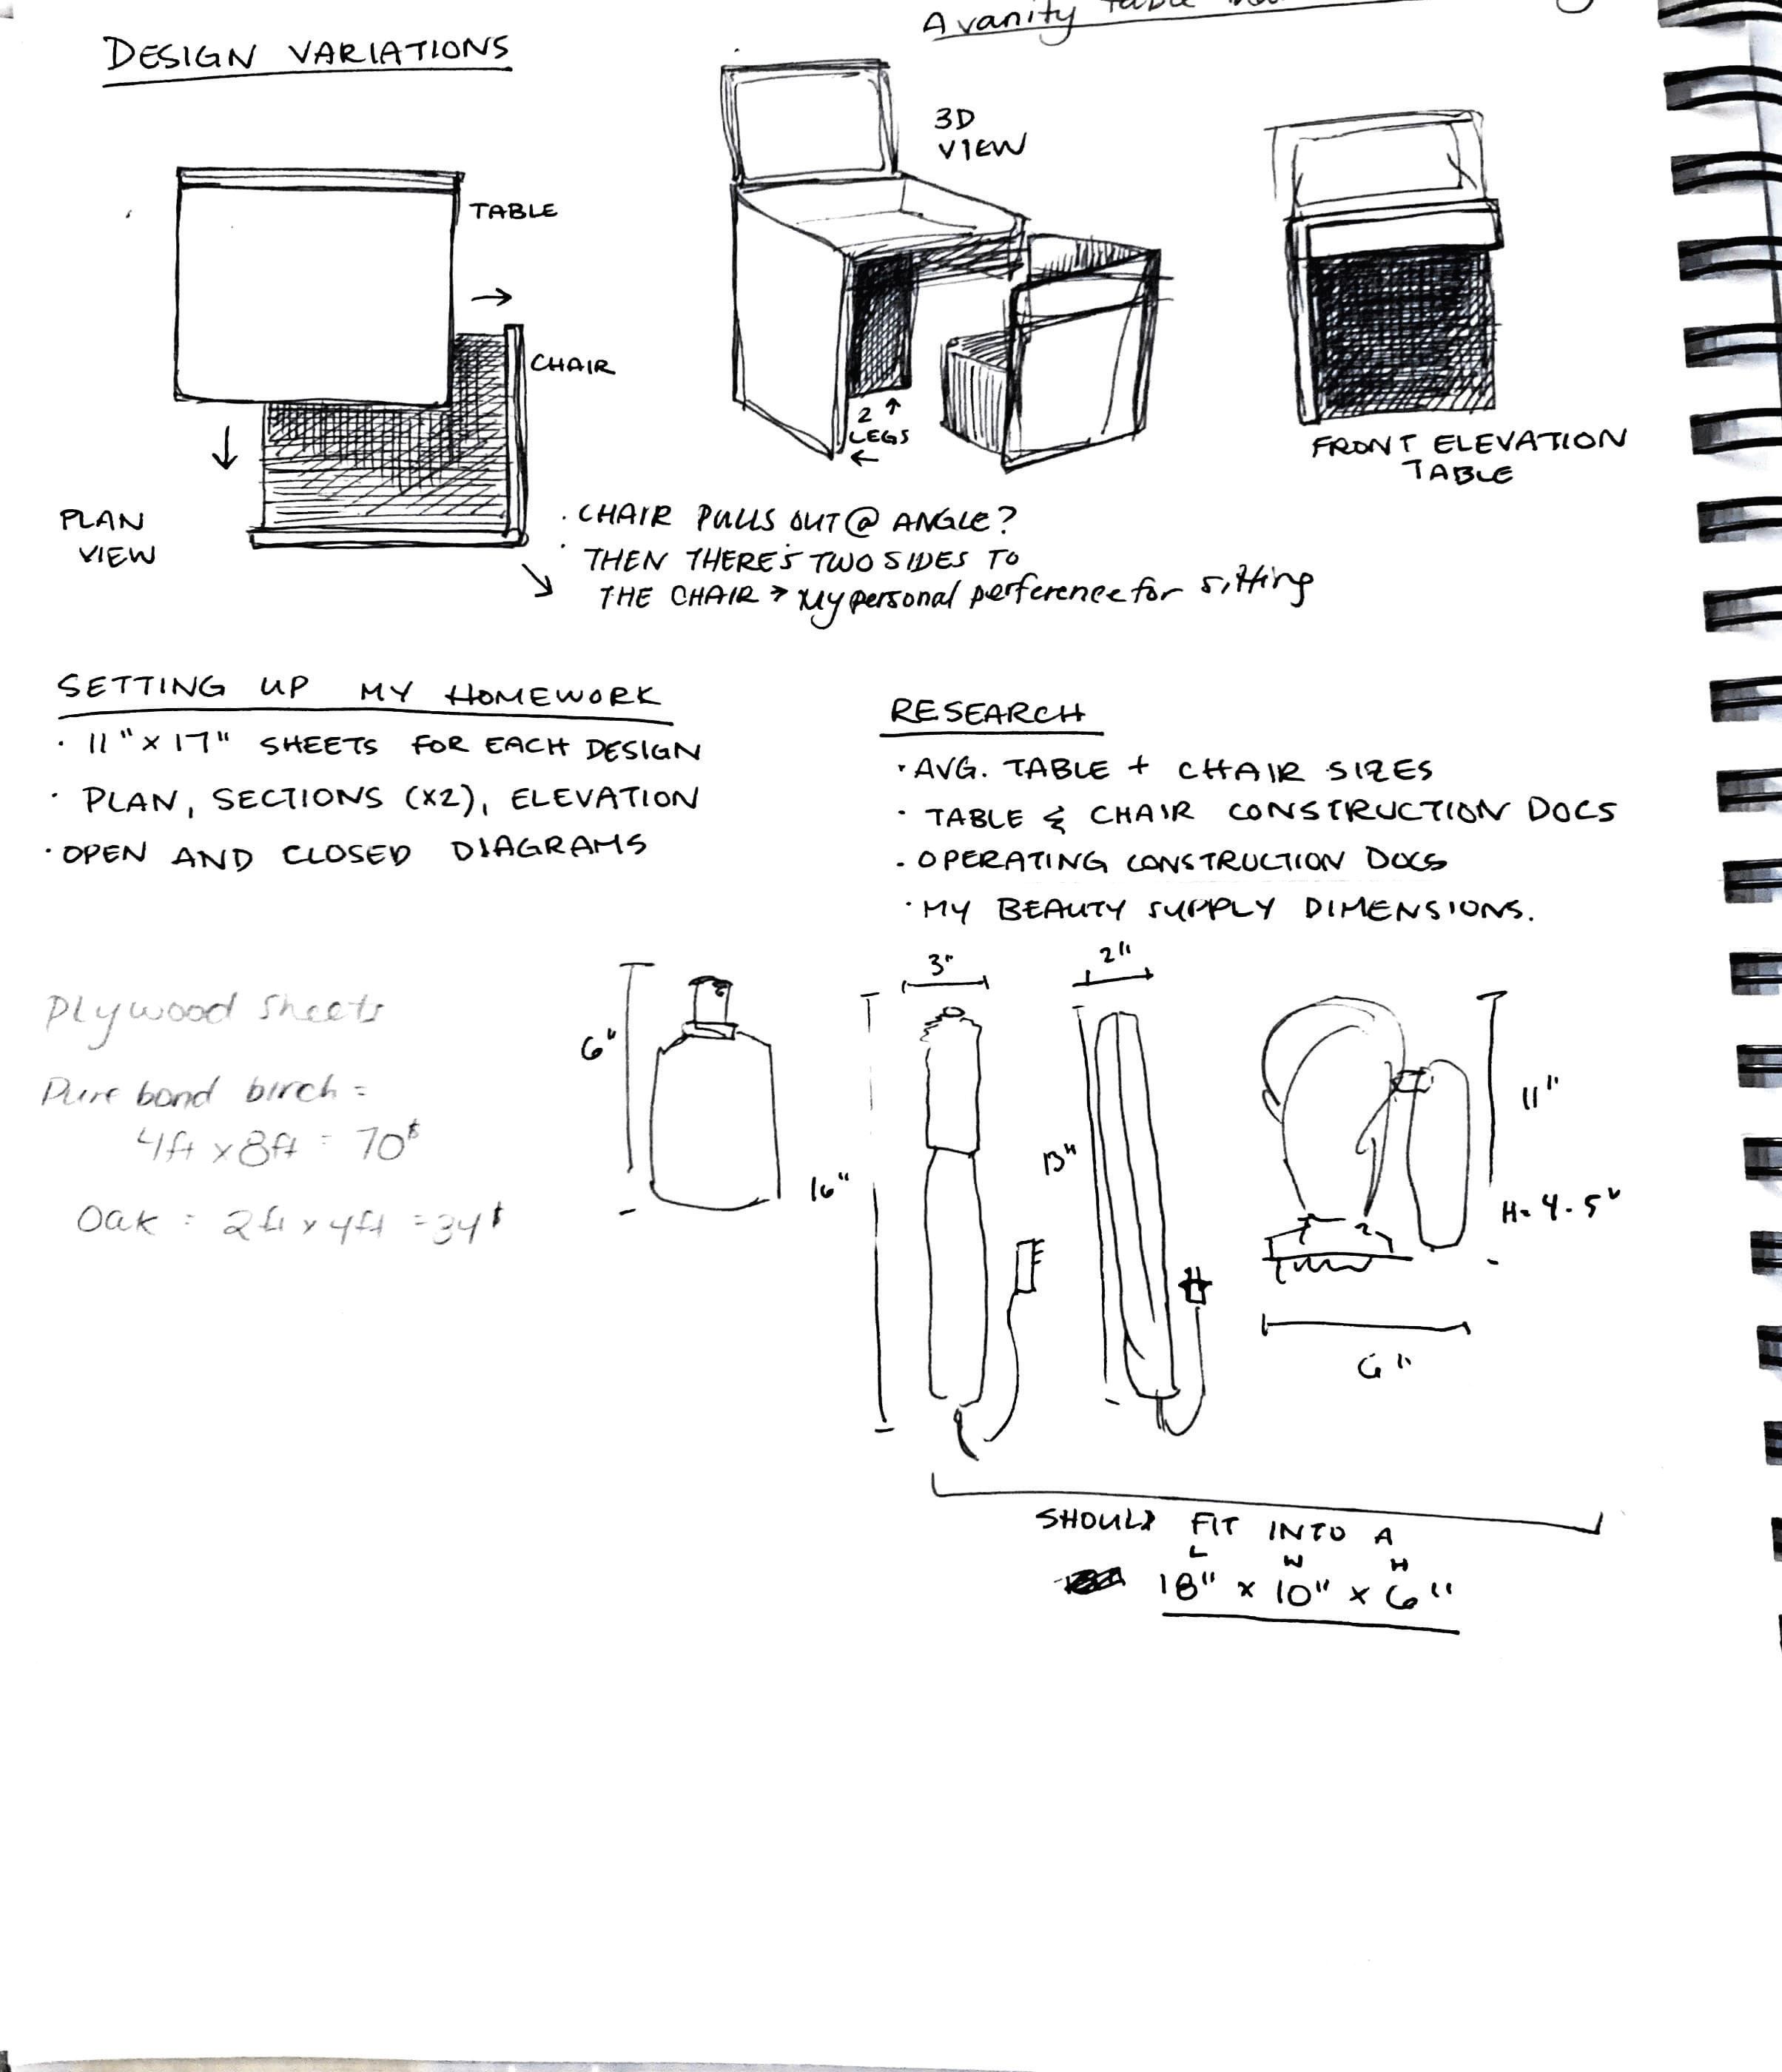 A vanity
DESIGN VARIATIONS
3D
VIEW
TABLE
CHAIR
2
LEGS
FRONT ELEVATION
TABLE
PLAN
VIEW
· CHAIR PULLS OUT @ ANGLE?
· THEN THERE'S TWO SIDES TO
THE CHAIR > My personal perference for sitting
SETTING UP MY HOMEWORK
· 11" x 17" SHEETS FOR EACH DESIGN
· PLAN, SECTIONS (x2), ELEVATION
· OPEN AND CLOSED DIAGRAMS
RESEARCH
· AVG. TABLE + CHAIR SIZES
· TABLE & CHAIR CONSTRUCTION DOCS
· OPERATING CONSTRUCTION DOCS
· MY BEAUTY SUPPLY DIMENSIONS.
Plywood sheets
Pure bond birch =
4ft x 8ft = 70$
Oak = 2ft x 4ft = 34$
6"
3"
16"
2"
13"
11"
H= 4-5"
6"
SHOULD FIT INTO A
L W H
18" x 10" x 6"